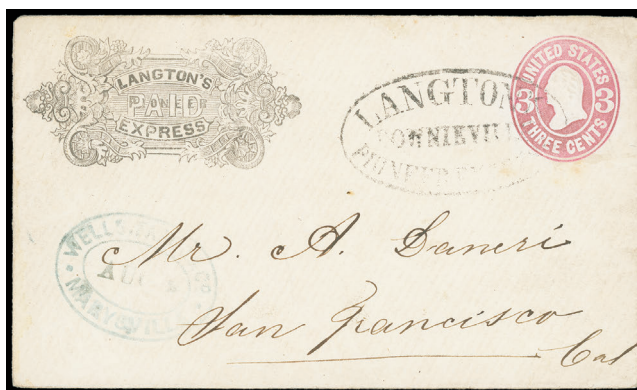 LANGTON'S
PIONEER
PAID
EXPRESS
LANGTON'S
DOWNIEVILLE
PIONEER
UNITED STATES
3 3
THREE CENTS
WELLS
AUG
MARYSVILLE
Mr. A. Daneri
San Francisco
Cal